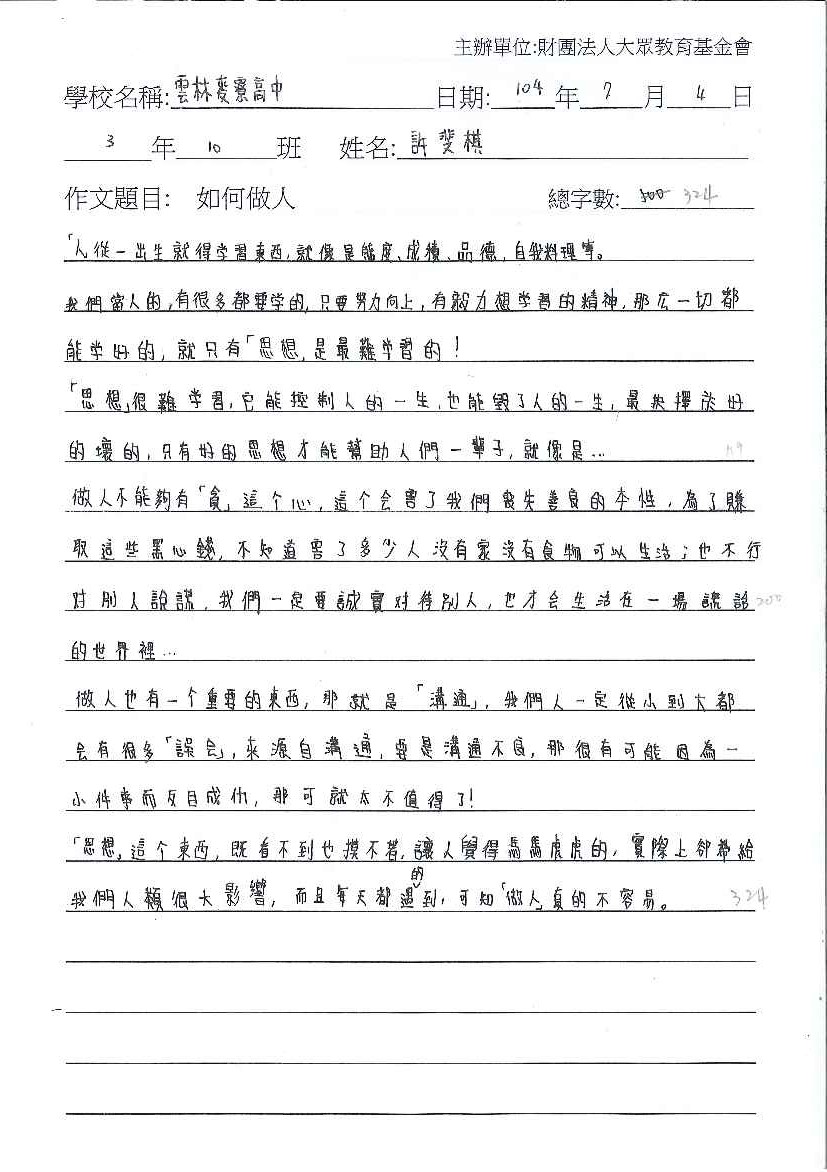 主辦單位:財團法人大眾教育基金會
學校名稱:雲林麥寮高中 日期: 104 年 7 月 4 日
3 年 10 班 姓名: 許斐棋
作文題目: 如何做人 總字數: 500 324
「人從一出生就得学習東西,就像是態度、成績、品德,自我料理等。
我們當人的,有很多都要学的,只要努力向上,有毅力想学習的精神,那広一切都
能学好的,就只有「思想,是最難学習的!
「思想」很難学習,它能控制人的一生,也能毀了人的一生,最共擇於好
的壞的,只有好的思想才能幫助人們一輩子,就像是…
做人不能夠有「貪」這个心,這个会害了我們喪失善良的本性,為了賺
取這些黑心錢,不知道害了多少人沒有家沒有食物可以生活;也不行
対別人說謊,我們一定要誠實対待別人,也才会生活在一場謊話 200
的世界裡…
做人也有一个重要的東西,那就是「溝通」,我們人一定從小到大都
会有很多「誤会」,來源自溝通,要是溝通不良,那很有可能因為一
小件事而反目成仇,那可就太不值得了!
「思想」這个東西,既看不到也摸不著,讓人覺得馬馬虎虎的,實際上卻都給
我們人類很大影響,而且每天都遇的到,可知「做人」真的不容易。 324